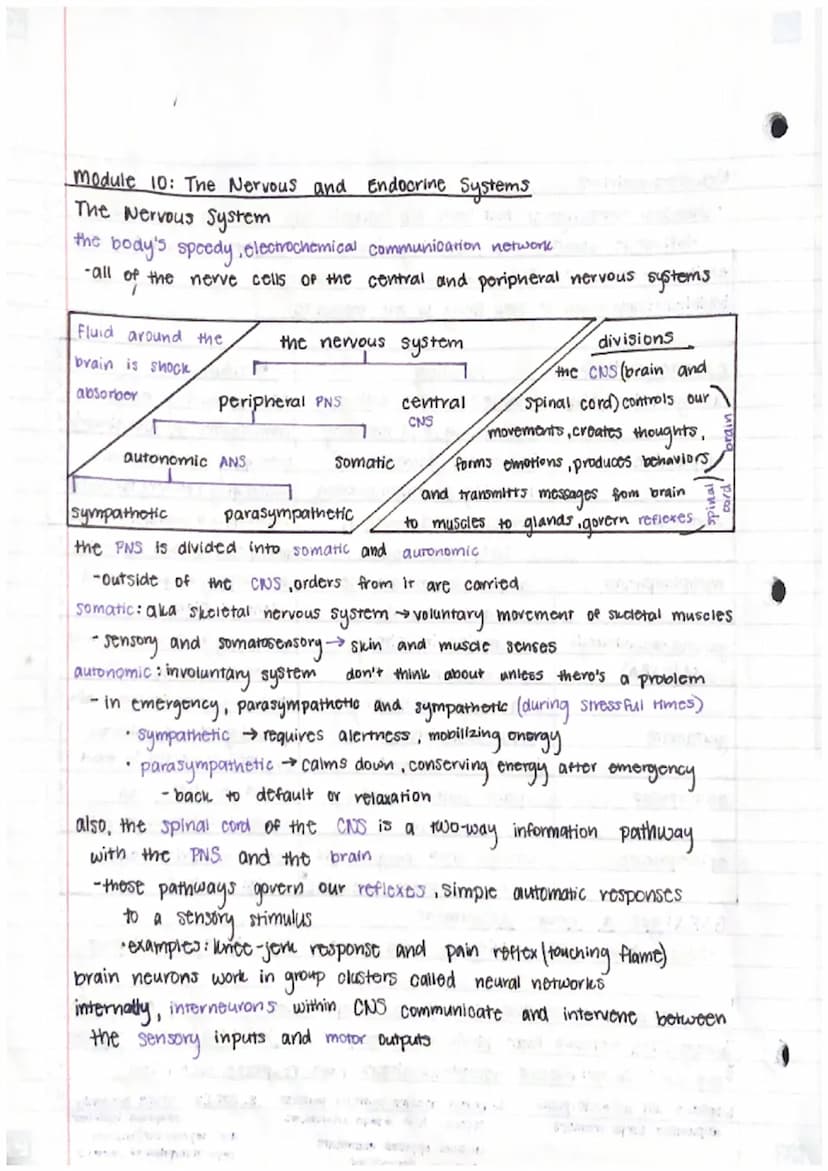 Module 10: The Nervous and Endocrine Systems
The Nervous System
the body's speedy, electrochemical communication network
-all of the nerve cells of the central and peripheral nervous systems
Fluid around the
brain is shock
absorber
the nervous system
peripheral PNS
central
CNS
autonomic ANS
somatic
sympathetic
parasympathetic
divisions
the CNS (brain and
spinal cord) controls our
movements, creates thoughts,
forms emotions, produces behaviors
brain
and transmitts messages from brain
to muscles to glands, govern reflexes
spinal
cord
the PNS is divided into somatic and autonomic
-outside of the CNS, orders from it are carried
somatic: aka skeletal nervous system → voluntary movement of skeletal muscles
- sensory and somatosensory → skin and muscle senses
autonomic: involuntary system don't think about unless there's a problem
- in emergency, parasympathetic and sympathetic (during stressful times)
• sympathetic → requires alertness, mobilizing energy
• parasympathetic → calms down, conserving energy after emergency
- back to default or relaxation
also, the spinal cord of the CNS is a two-way information pathway
with the PNS and the brain
-these pathways govern our reflexes, simple automatic responses
to a sensory stimulus
•examples: knee-jerk response and pain reflex (touching flame)
brain neurons work in group clusters called neural networks
internally, interneurons within CNS communicate and intervene between
the sensory inputs and motor outputs